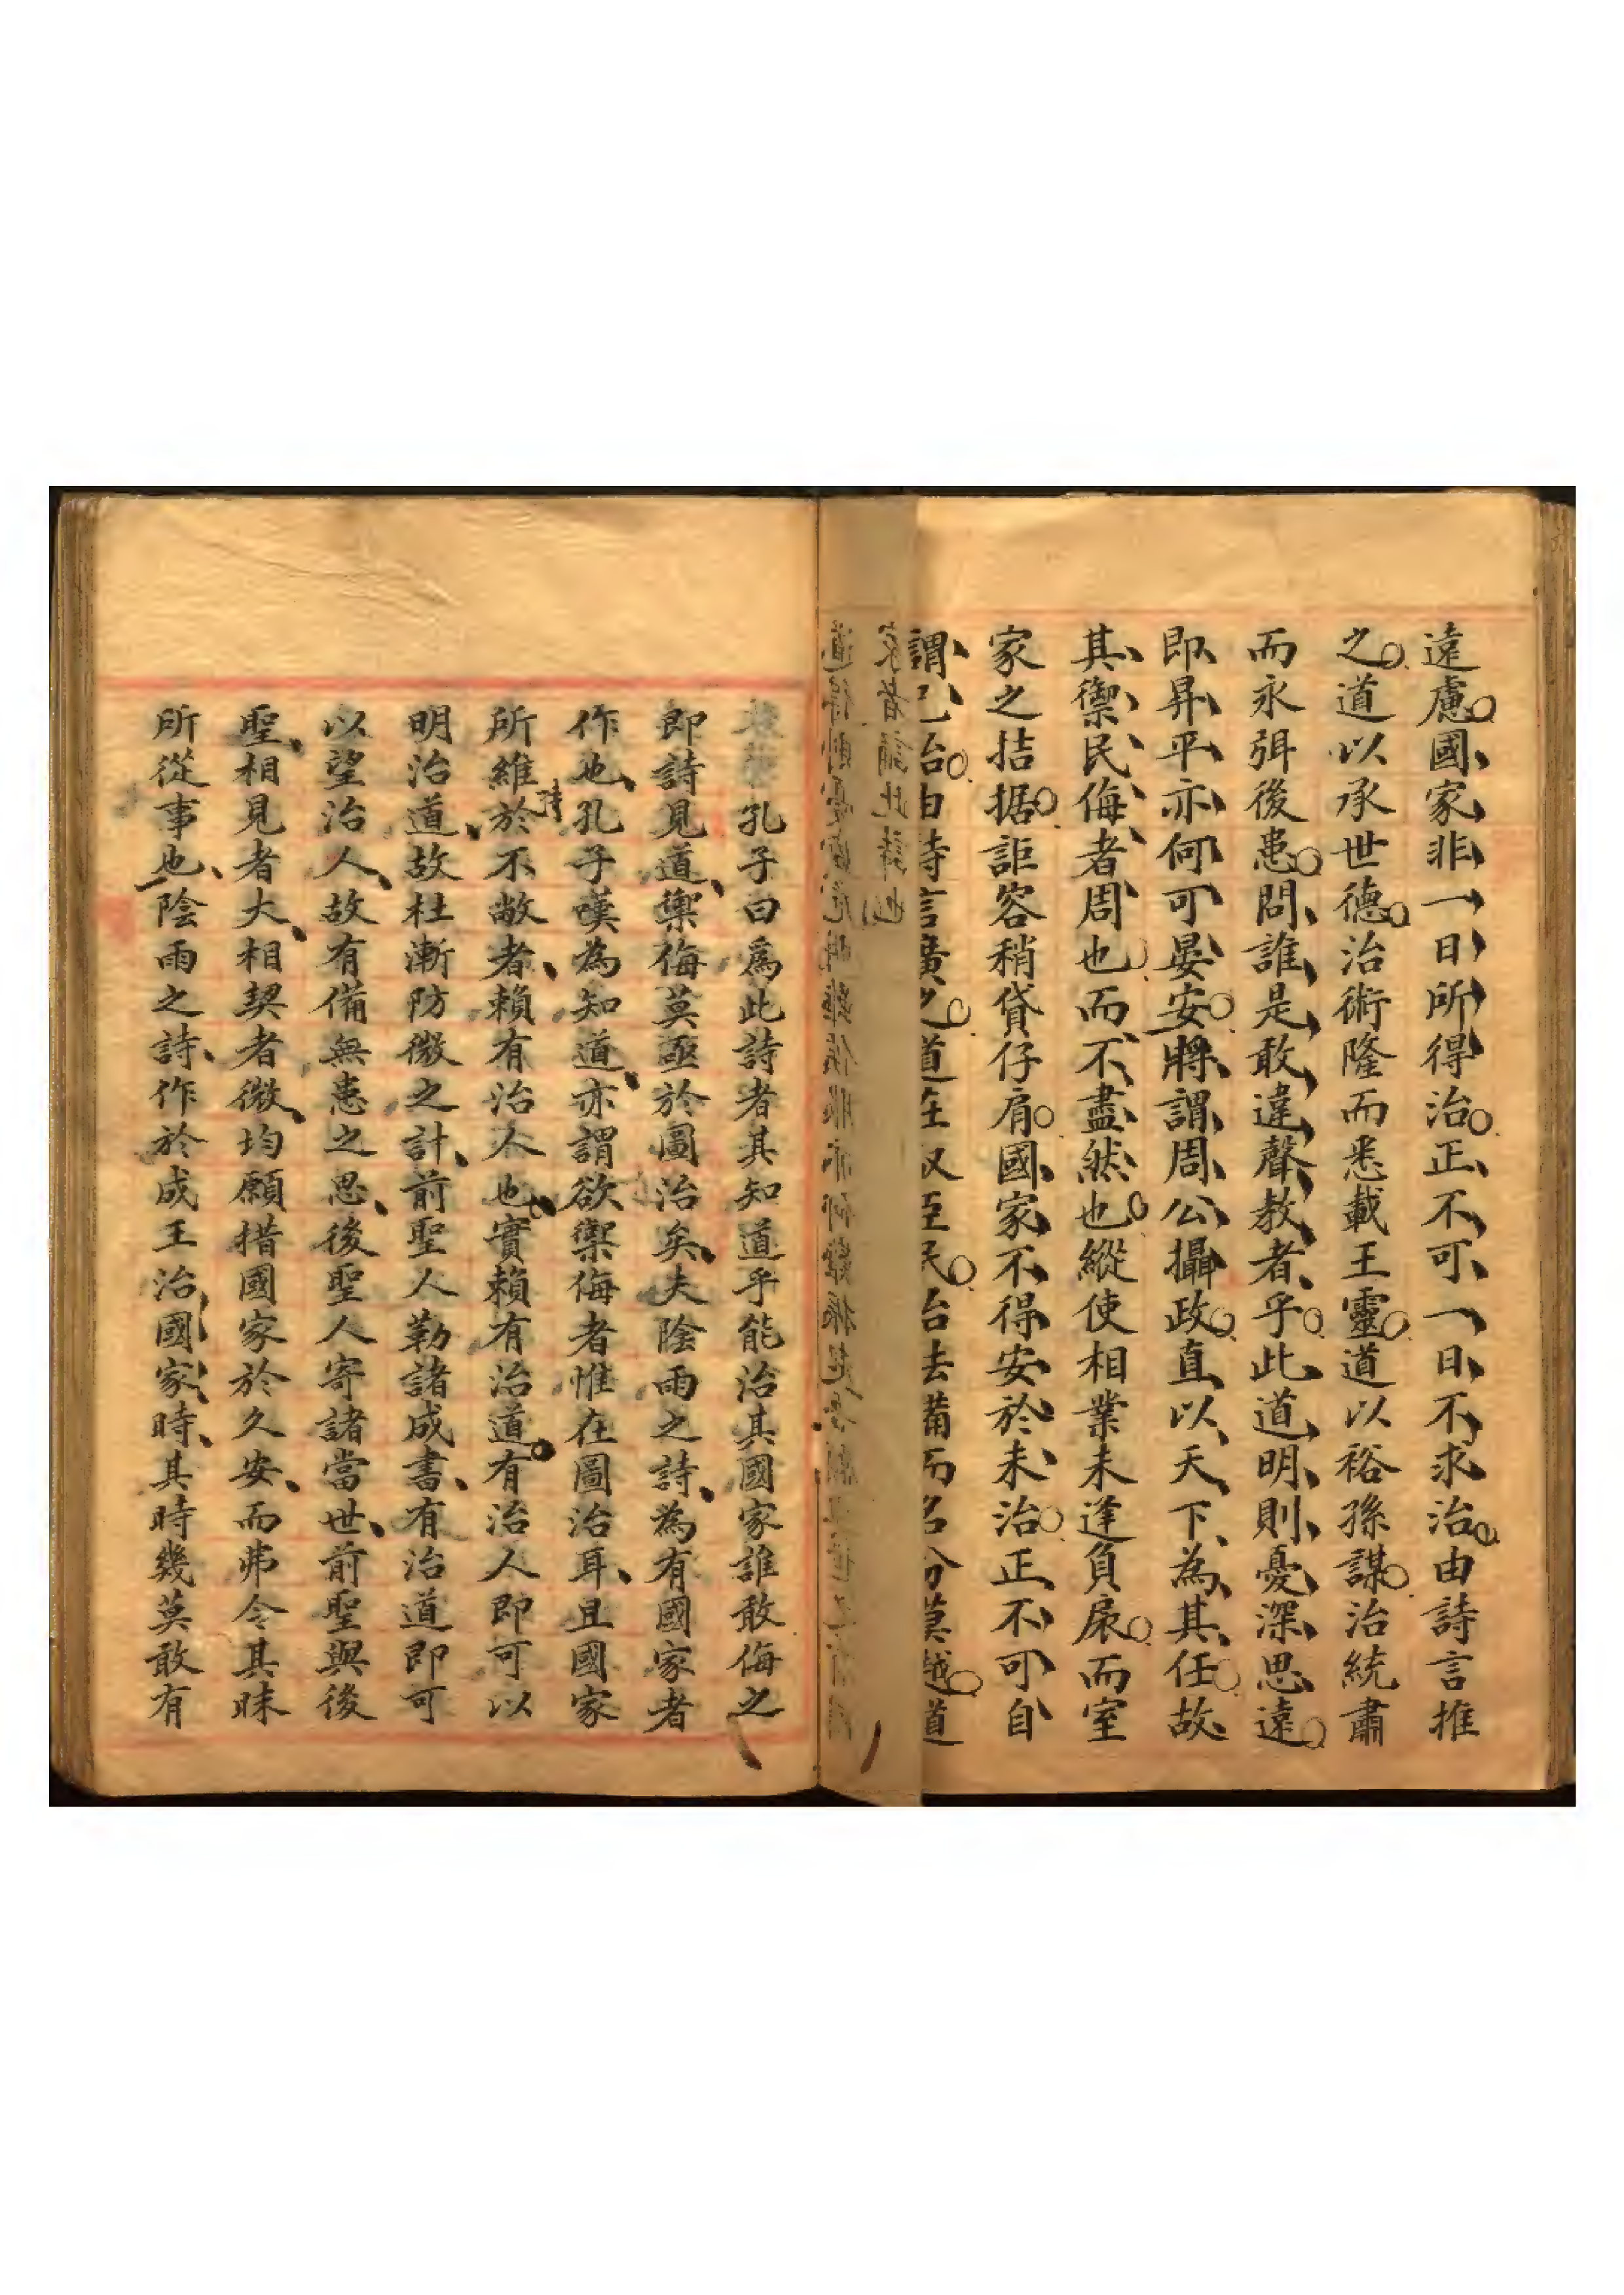 遠慮國家非一日所得治正不可一日不求治由詩言推
之道以承世德治術隆而悉載王靈道以裕孫謀治統肅
而永弭後患問誰是敢違聲教者乎此道明則憂深思遠
即昇平亦何可晏安將謂周公攝政直以天下為其任故
其禦民侮者周也而不盡然也縱使相業未逢負扆而室
家之拮据詎容稍貸仔肩國家不得安於未治正不可自
謂已治由詩言廣之道在馭臣民治法備而名分莫越道
孔子曰爲此詩者其知道乎能治其國家誰敢侮之
即詩見道禦侮莫亟於圖治矣夫陰雨之詩為有國家者
作也孔子嘆為知道亦謂欲禦侮者惟在圖治耳且國家
所維於不敝者賴有治人也實賴有治道有治人即可以
詩
明治道故杜漸防微之計前聖人勒諸成書有治道即可
以望治人故有備無患之思後聖人寄諸當世前聖與後
聖相見者大相契者微均願措國家於久安而弗令其昧
所從事也陰雨之詩作於成王治國家時其時幾莫敢有